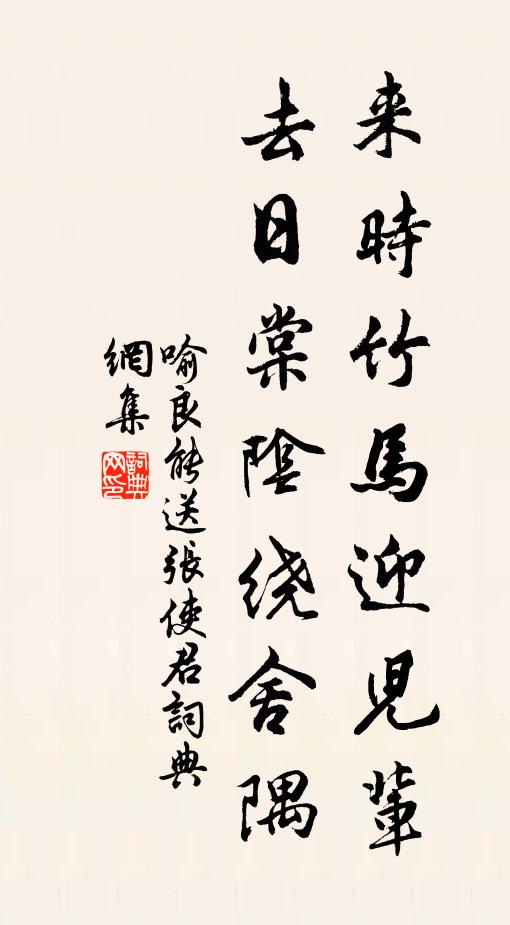 来時竹馬迎児輩
去日棠陰绕舍隅
喻良能送張使君詞典
網集
詞典网印